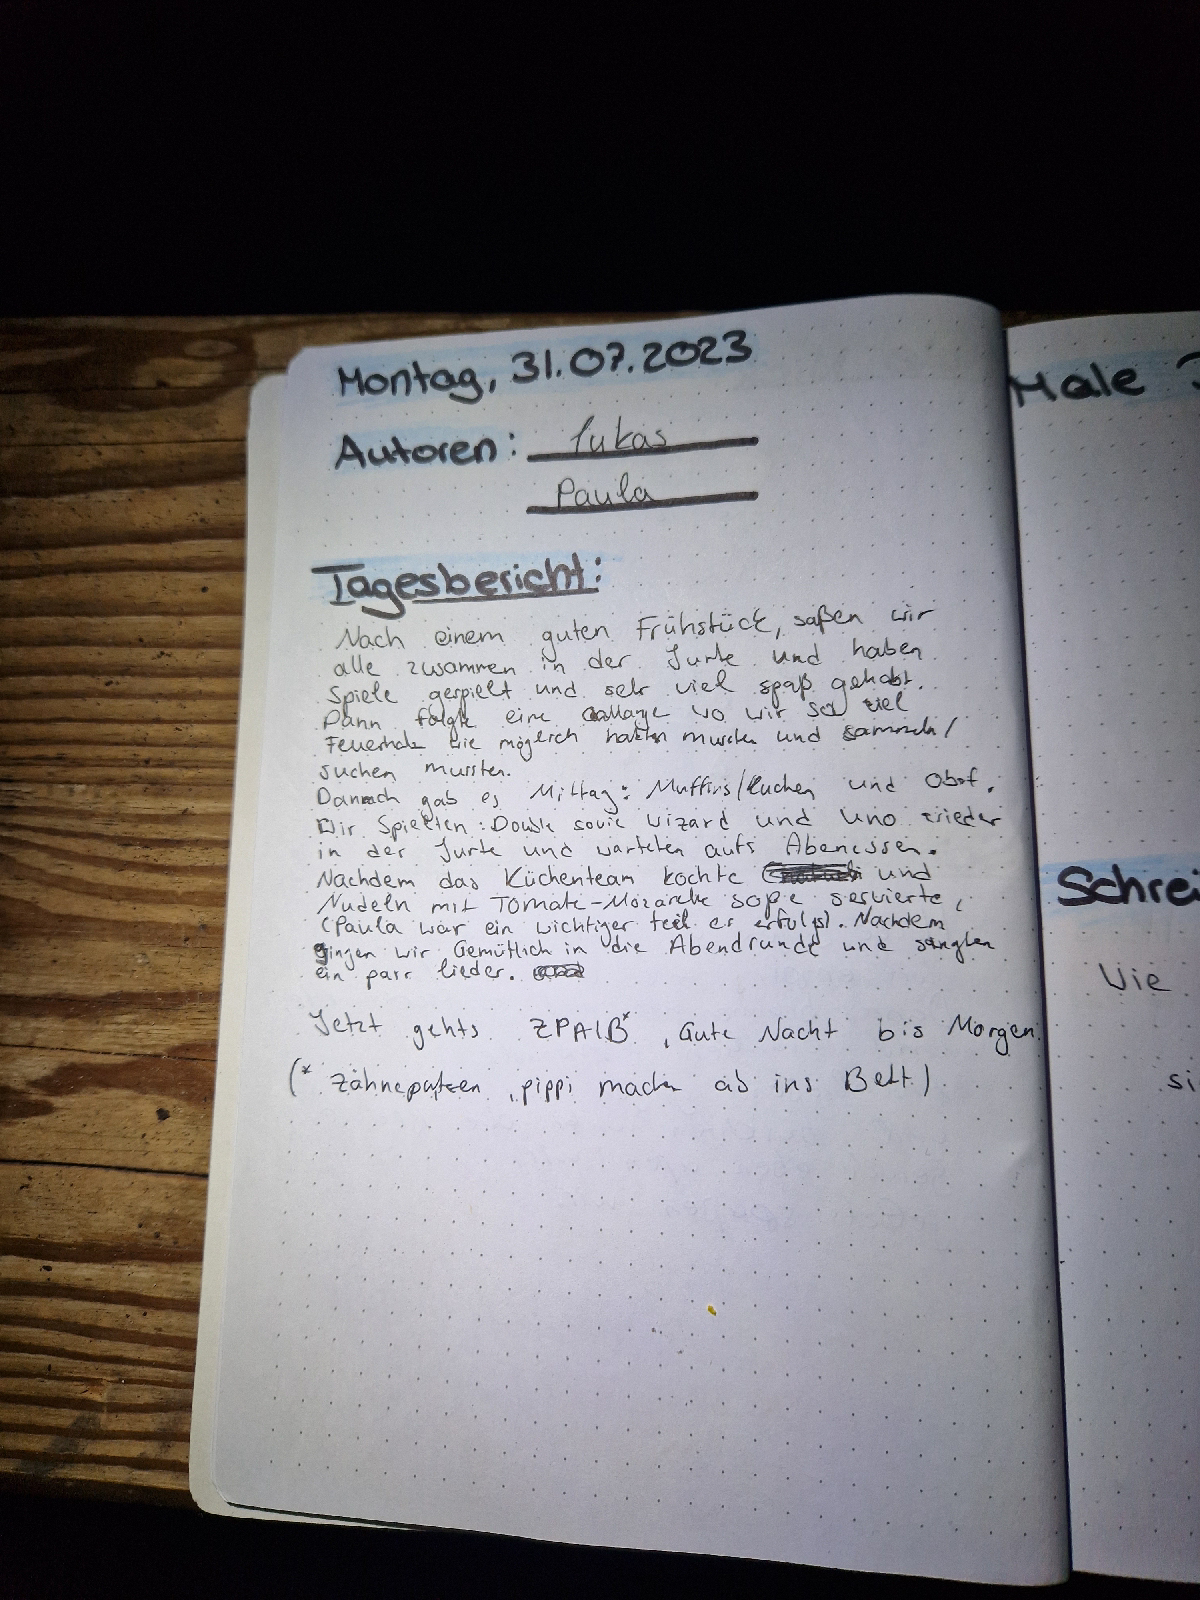 Montag, 31.07.2023
Autoren: Lukas
Paula
Tagesbericht:
Nach einem guten Frühstück, saßen wir
alle zusammen in der Jurte und haben
Spiele gespielt und sehr viel spaß gehabt.
Dann folgte eine wo wir so viel
Feuerholz wie möglich mussten und sammeln/
suchen mussten.
Danach gab es Mittag: Muffins/Kuchen und Obst.
Wir Spielten: Double sowie wizard und uno wieder
in der Jurte und warteten aufs Abenessen.
Nachdem das Küchenteam kochte und
Nudeln mit Tomate-Mozarella soße servierte,
(Paula war ein wichtiger teil es erfolgs). Nachdem
gingen wir Gemütlich in die Abendrunde und
ein parr lieder.
Jetzt gehts ZPAIB*, Gute Nacht bis Morgen.
(* Zähneputzen, pippi machen ab ins Bett)
Male
Schrei
Wie
si